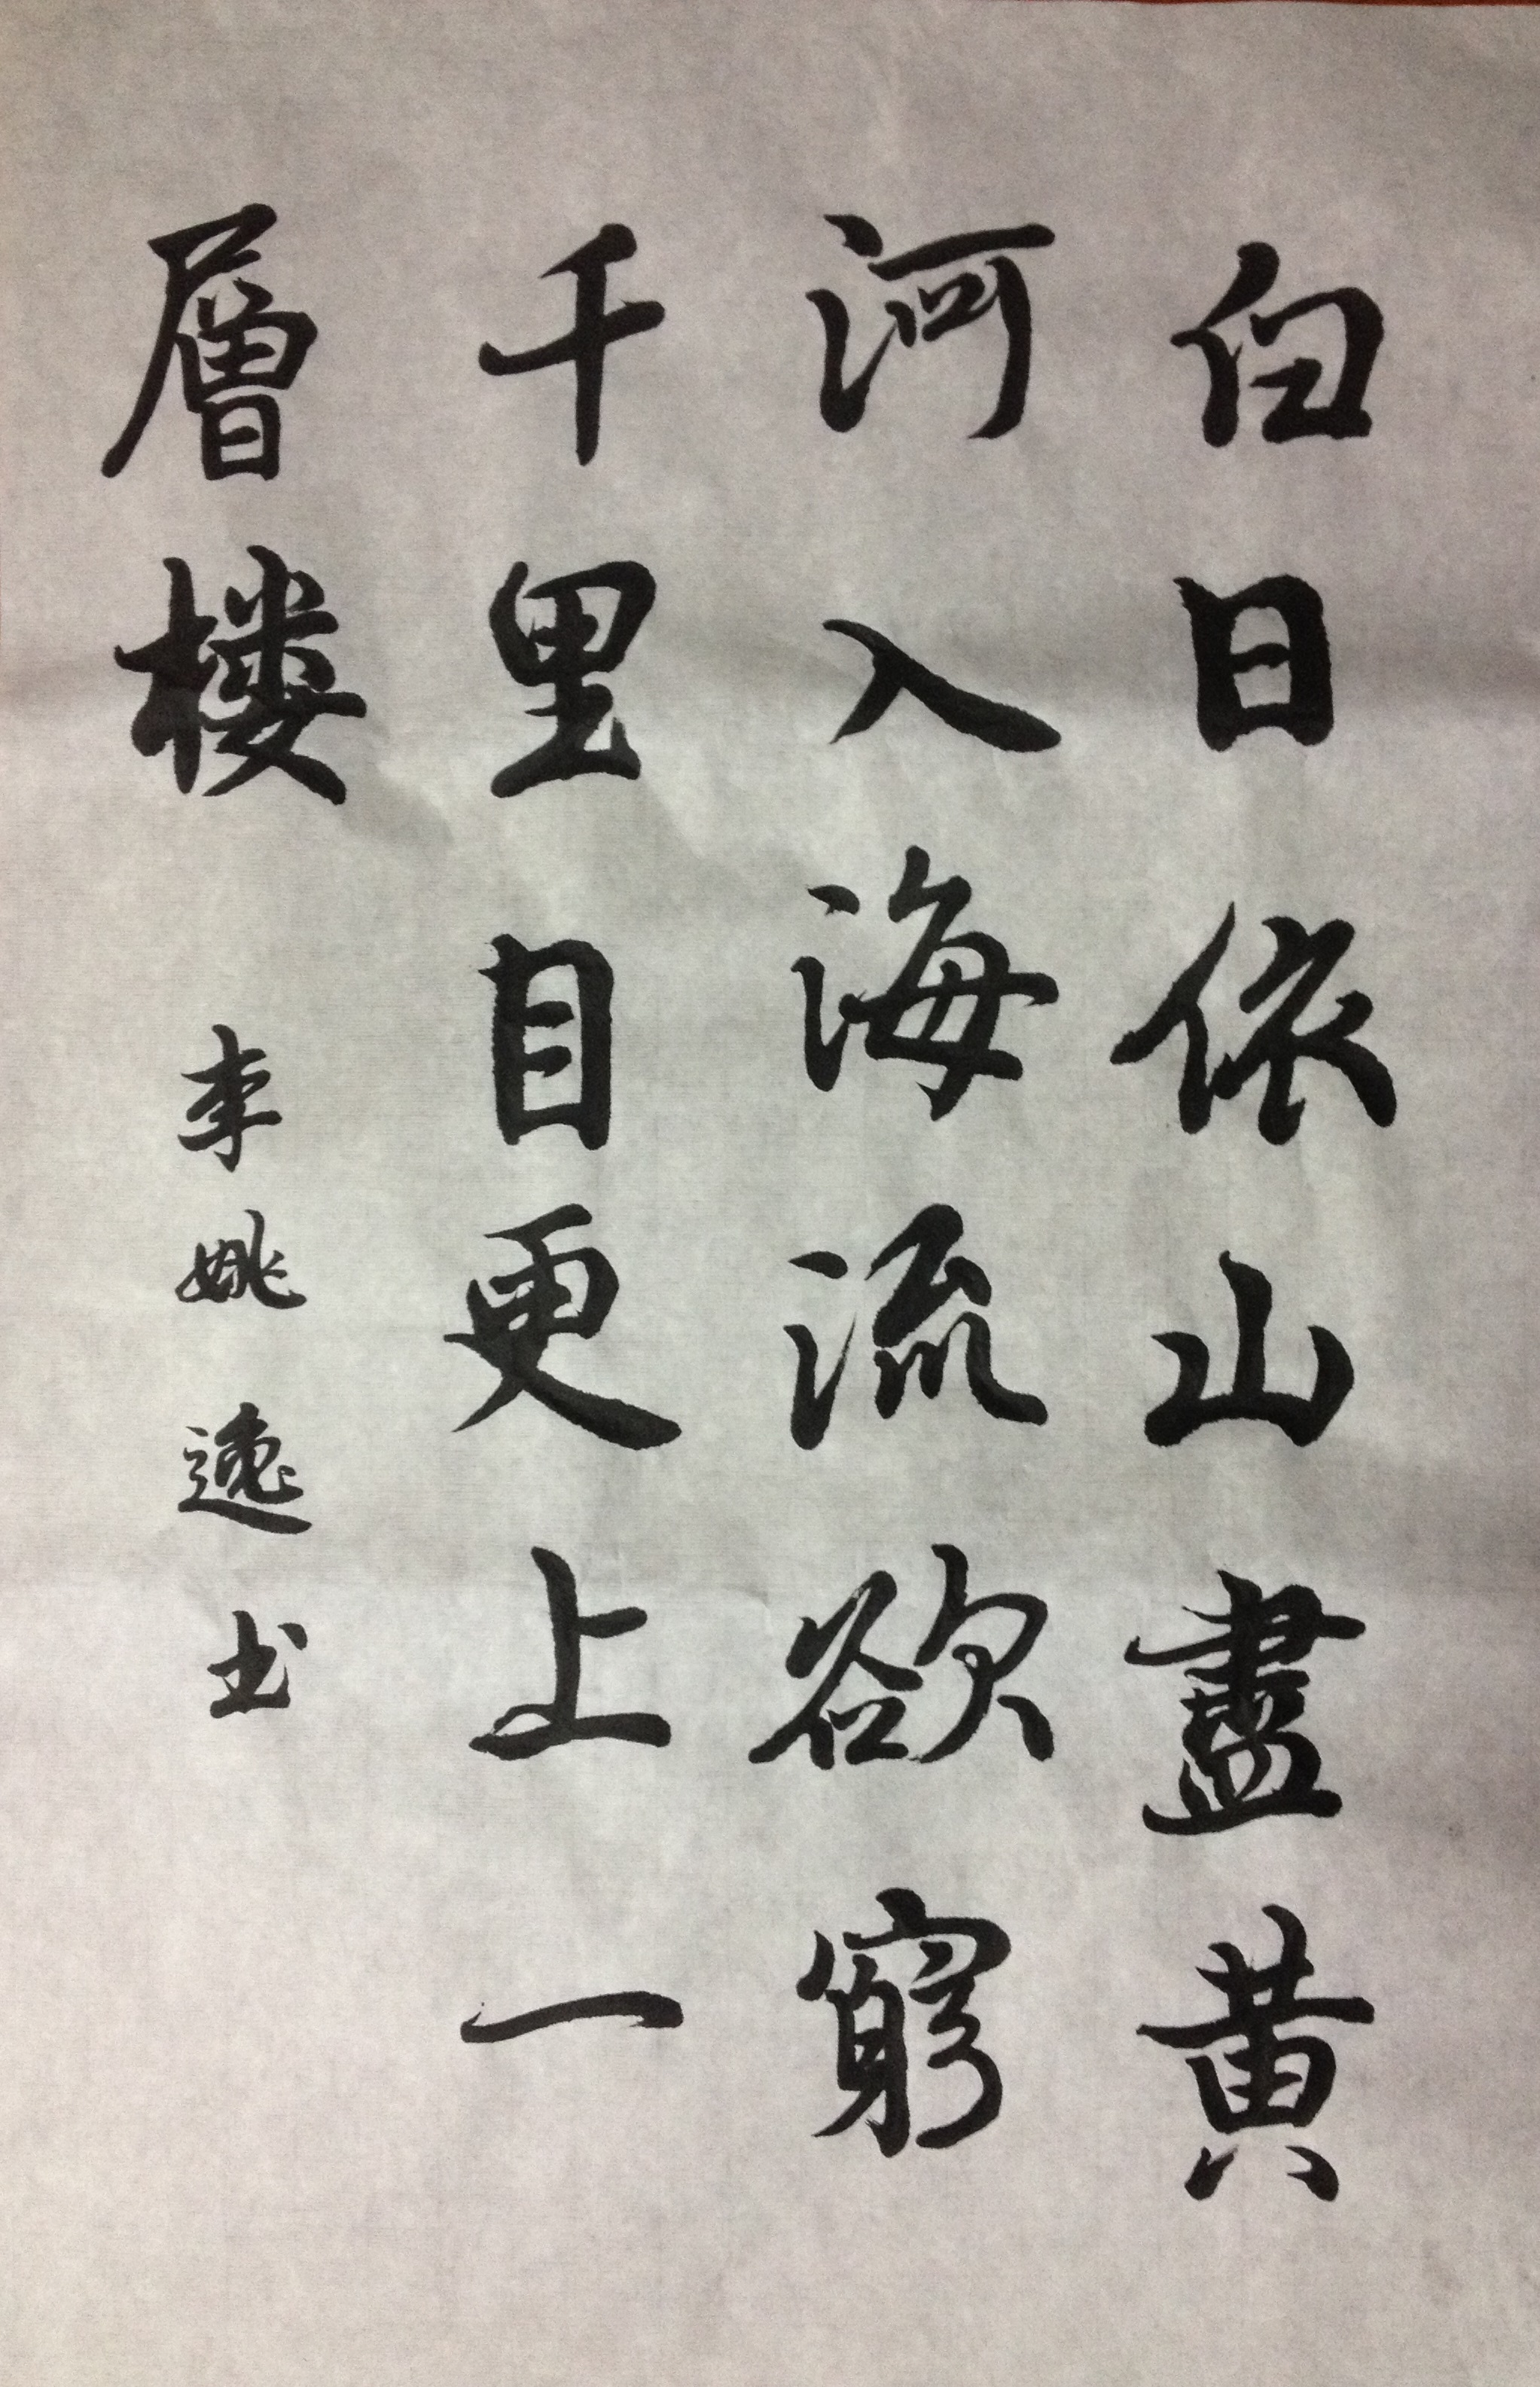 白日依山盡黃
河入海流欲窮
千里目更上一
層楼
李姚逸书